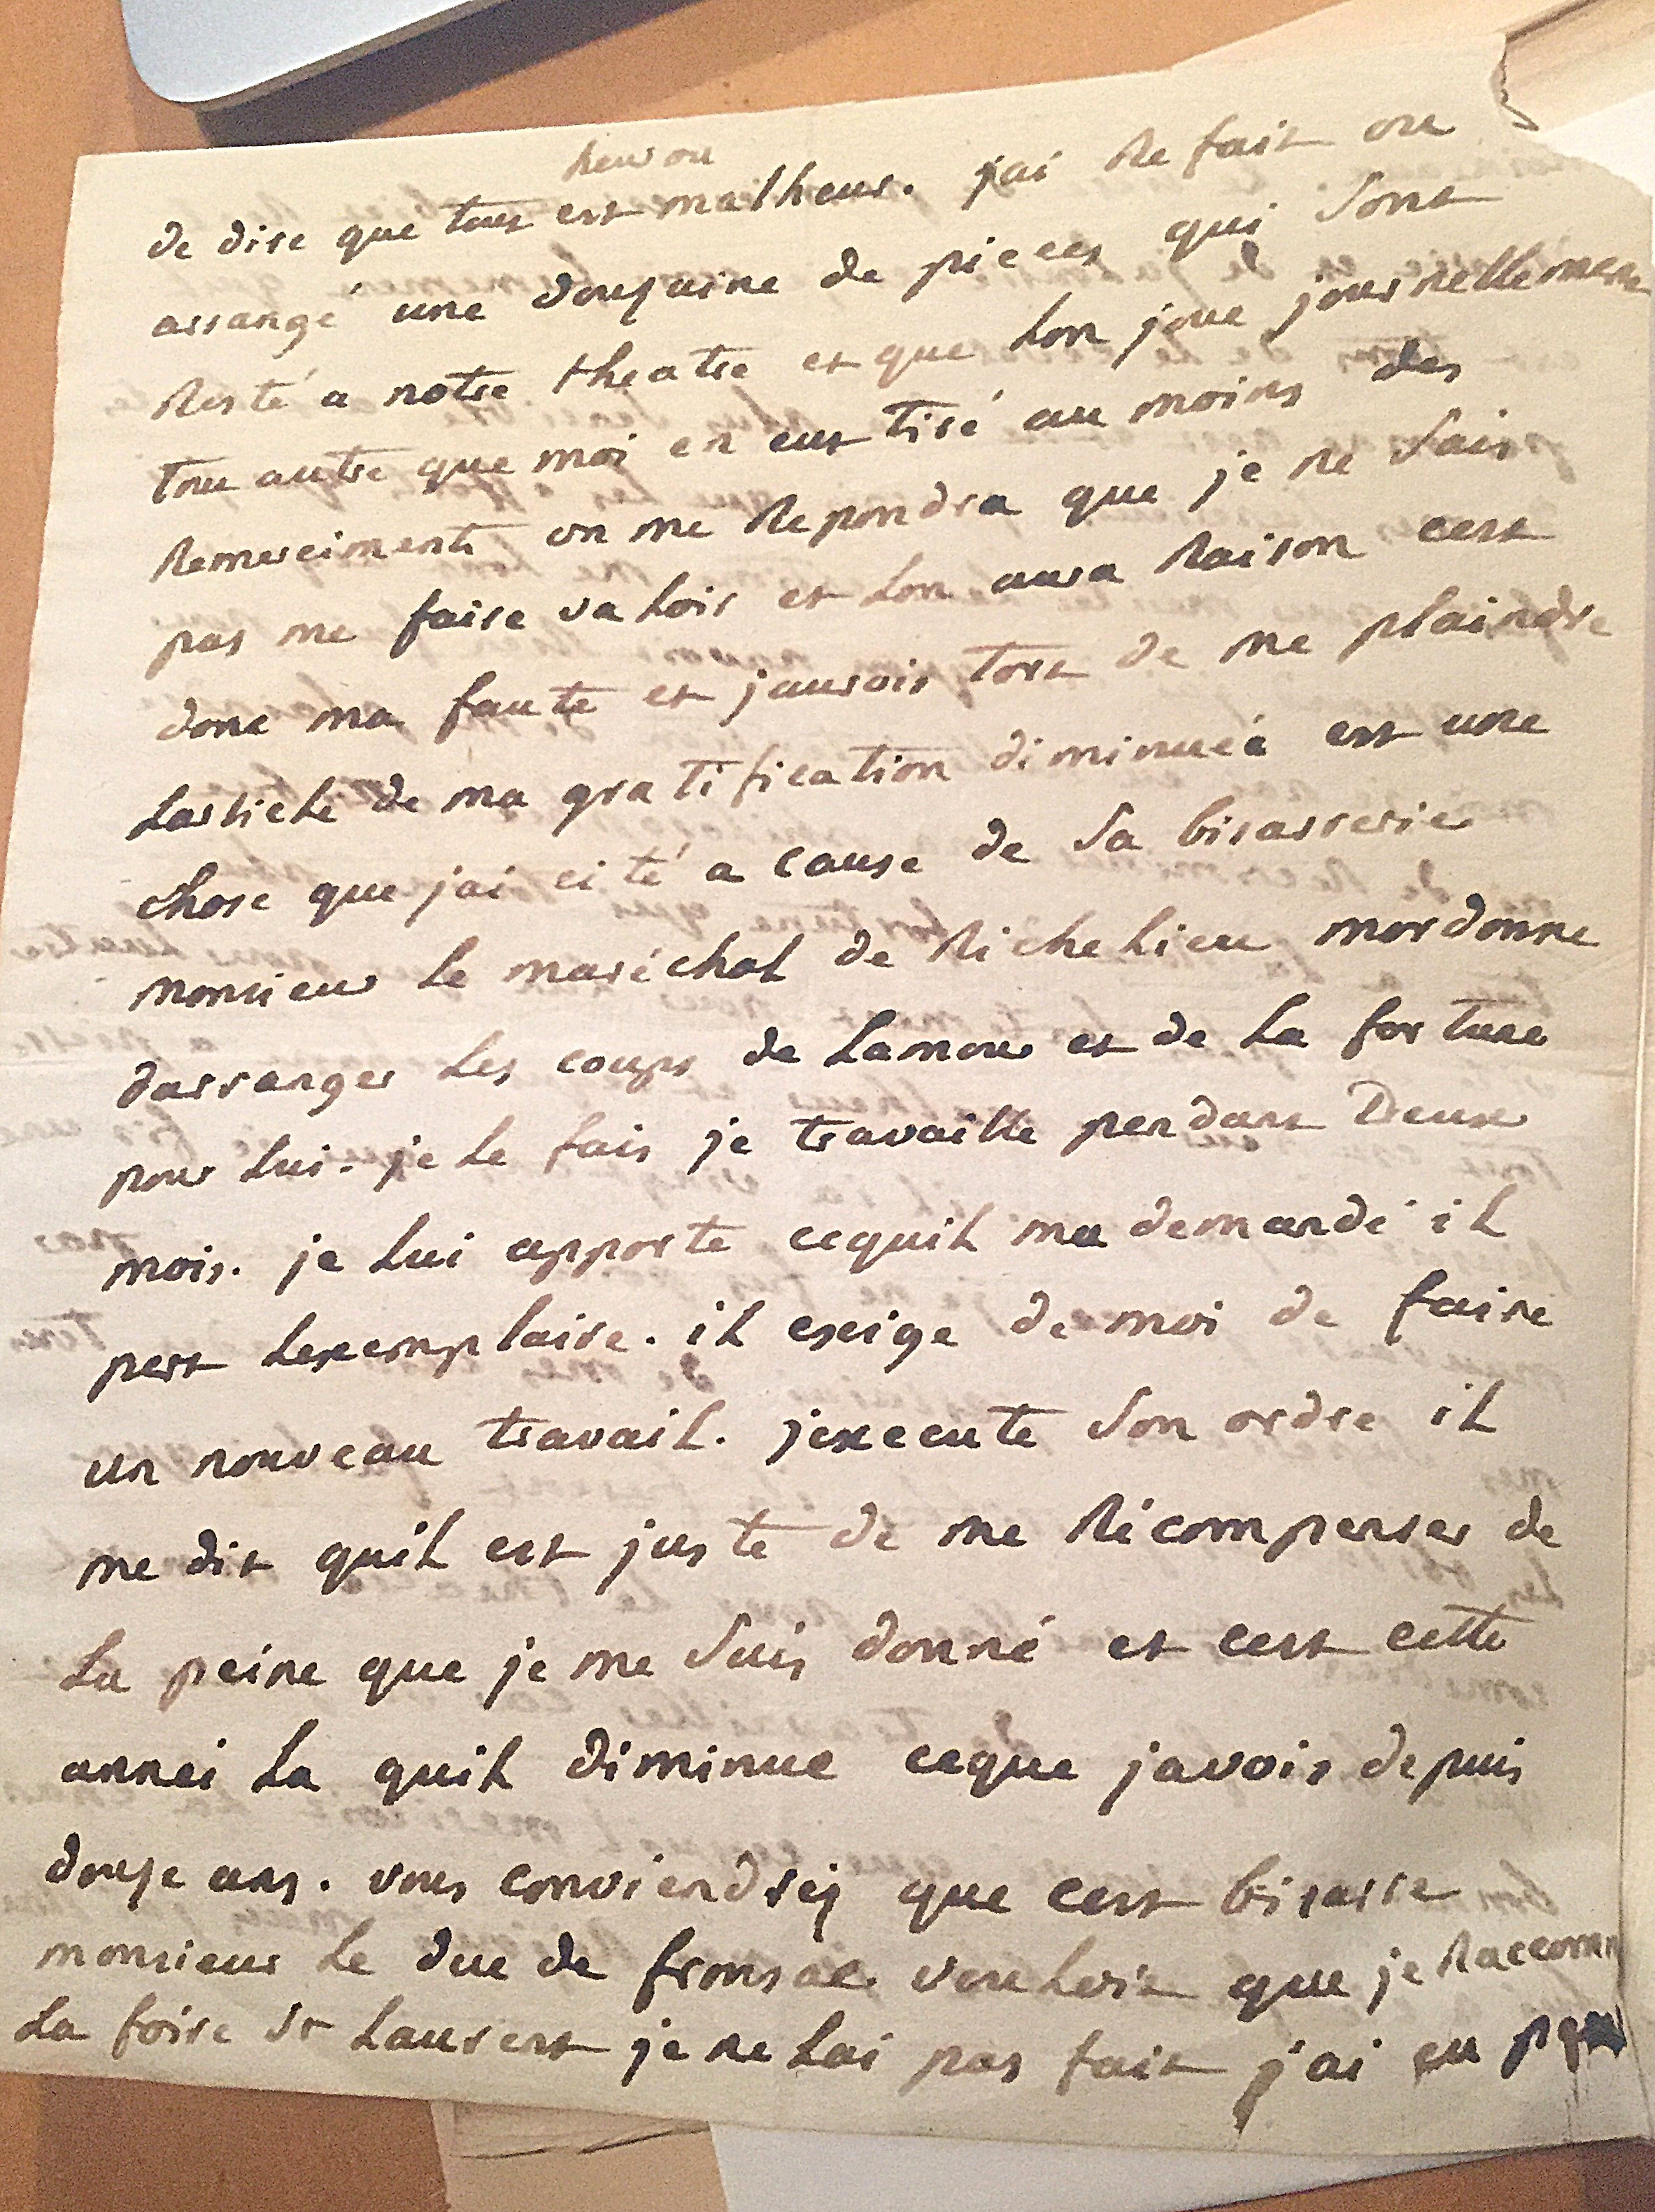 heur ou
de dire que tout est malheur. jai Refait ou
arrangé une douzaine de pieces qui sont
Resté a notre theatre et que Lon joue journellement
tou autre que moi en eut tiré au moins des
Remerciments on me Repondra que je ne sais
pas me faire valoir et Lon aura Raison cest
donc ma faute et jaurois tort de me plaindre
Larticle de ma gratification diminuéé est une
chose que jai cité a cause de sa bisarrerie
monsieur Le maréchal de Richelieu mordonne
darranger Les coups de Lamour et de La fortune
pour Lui. je Le fais je travaille pendant Deux
mois. je Lui apporte cequil ma demandé il
pert Lexemplaire. il exige de moi de faire
un nouveau travail. jexecute son ordre il
me dit quil est juste de me Récompenser de
La peine que je me suis donné et cest cette
anneé La quil diminue ceque javois depuis
douze ans. vous conviendrez que cest bisarre
monsieur Le duc de fronsac vouloit que je Raccom
La foire st Laurent je ne Lai pas fait j'ai eu